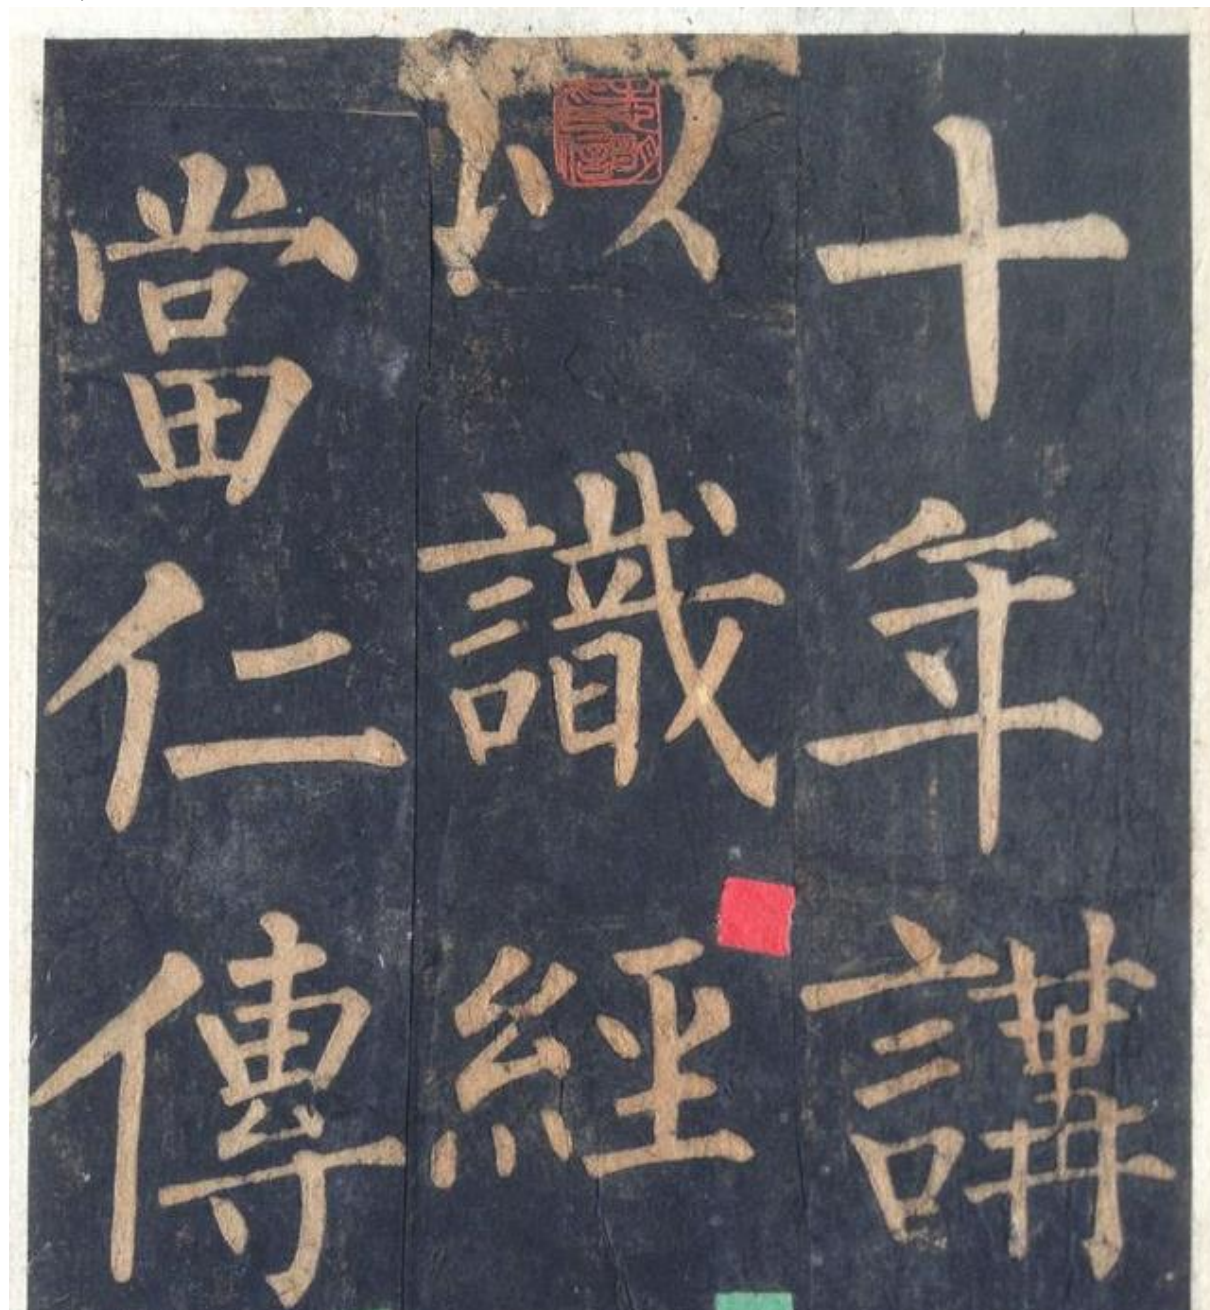 十年講
以識經
當仁傳